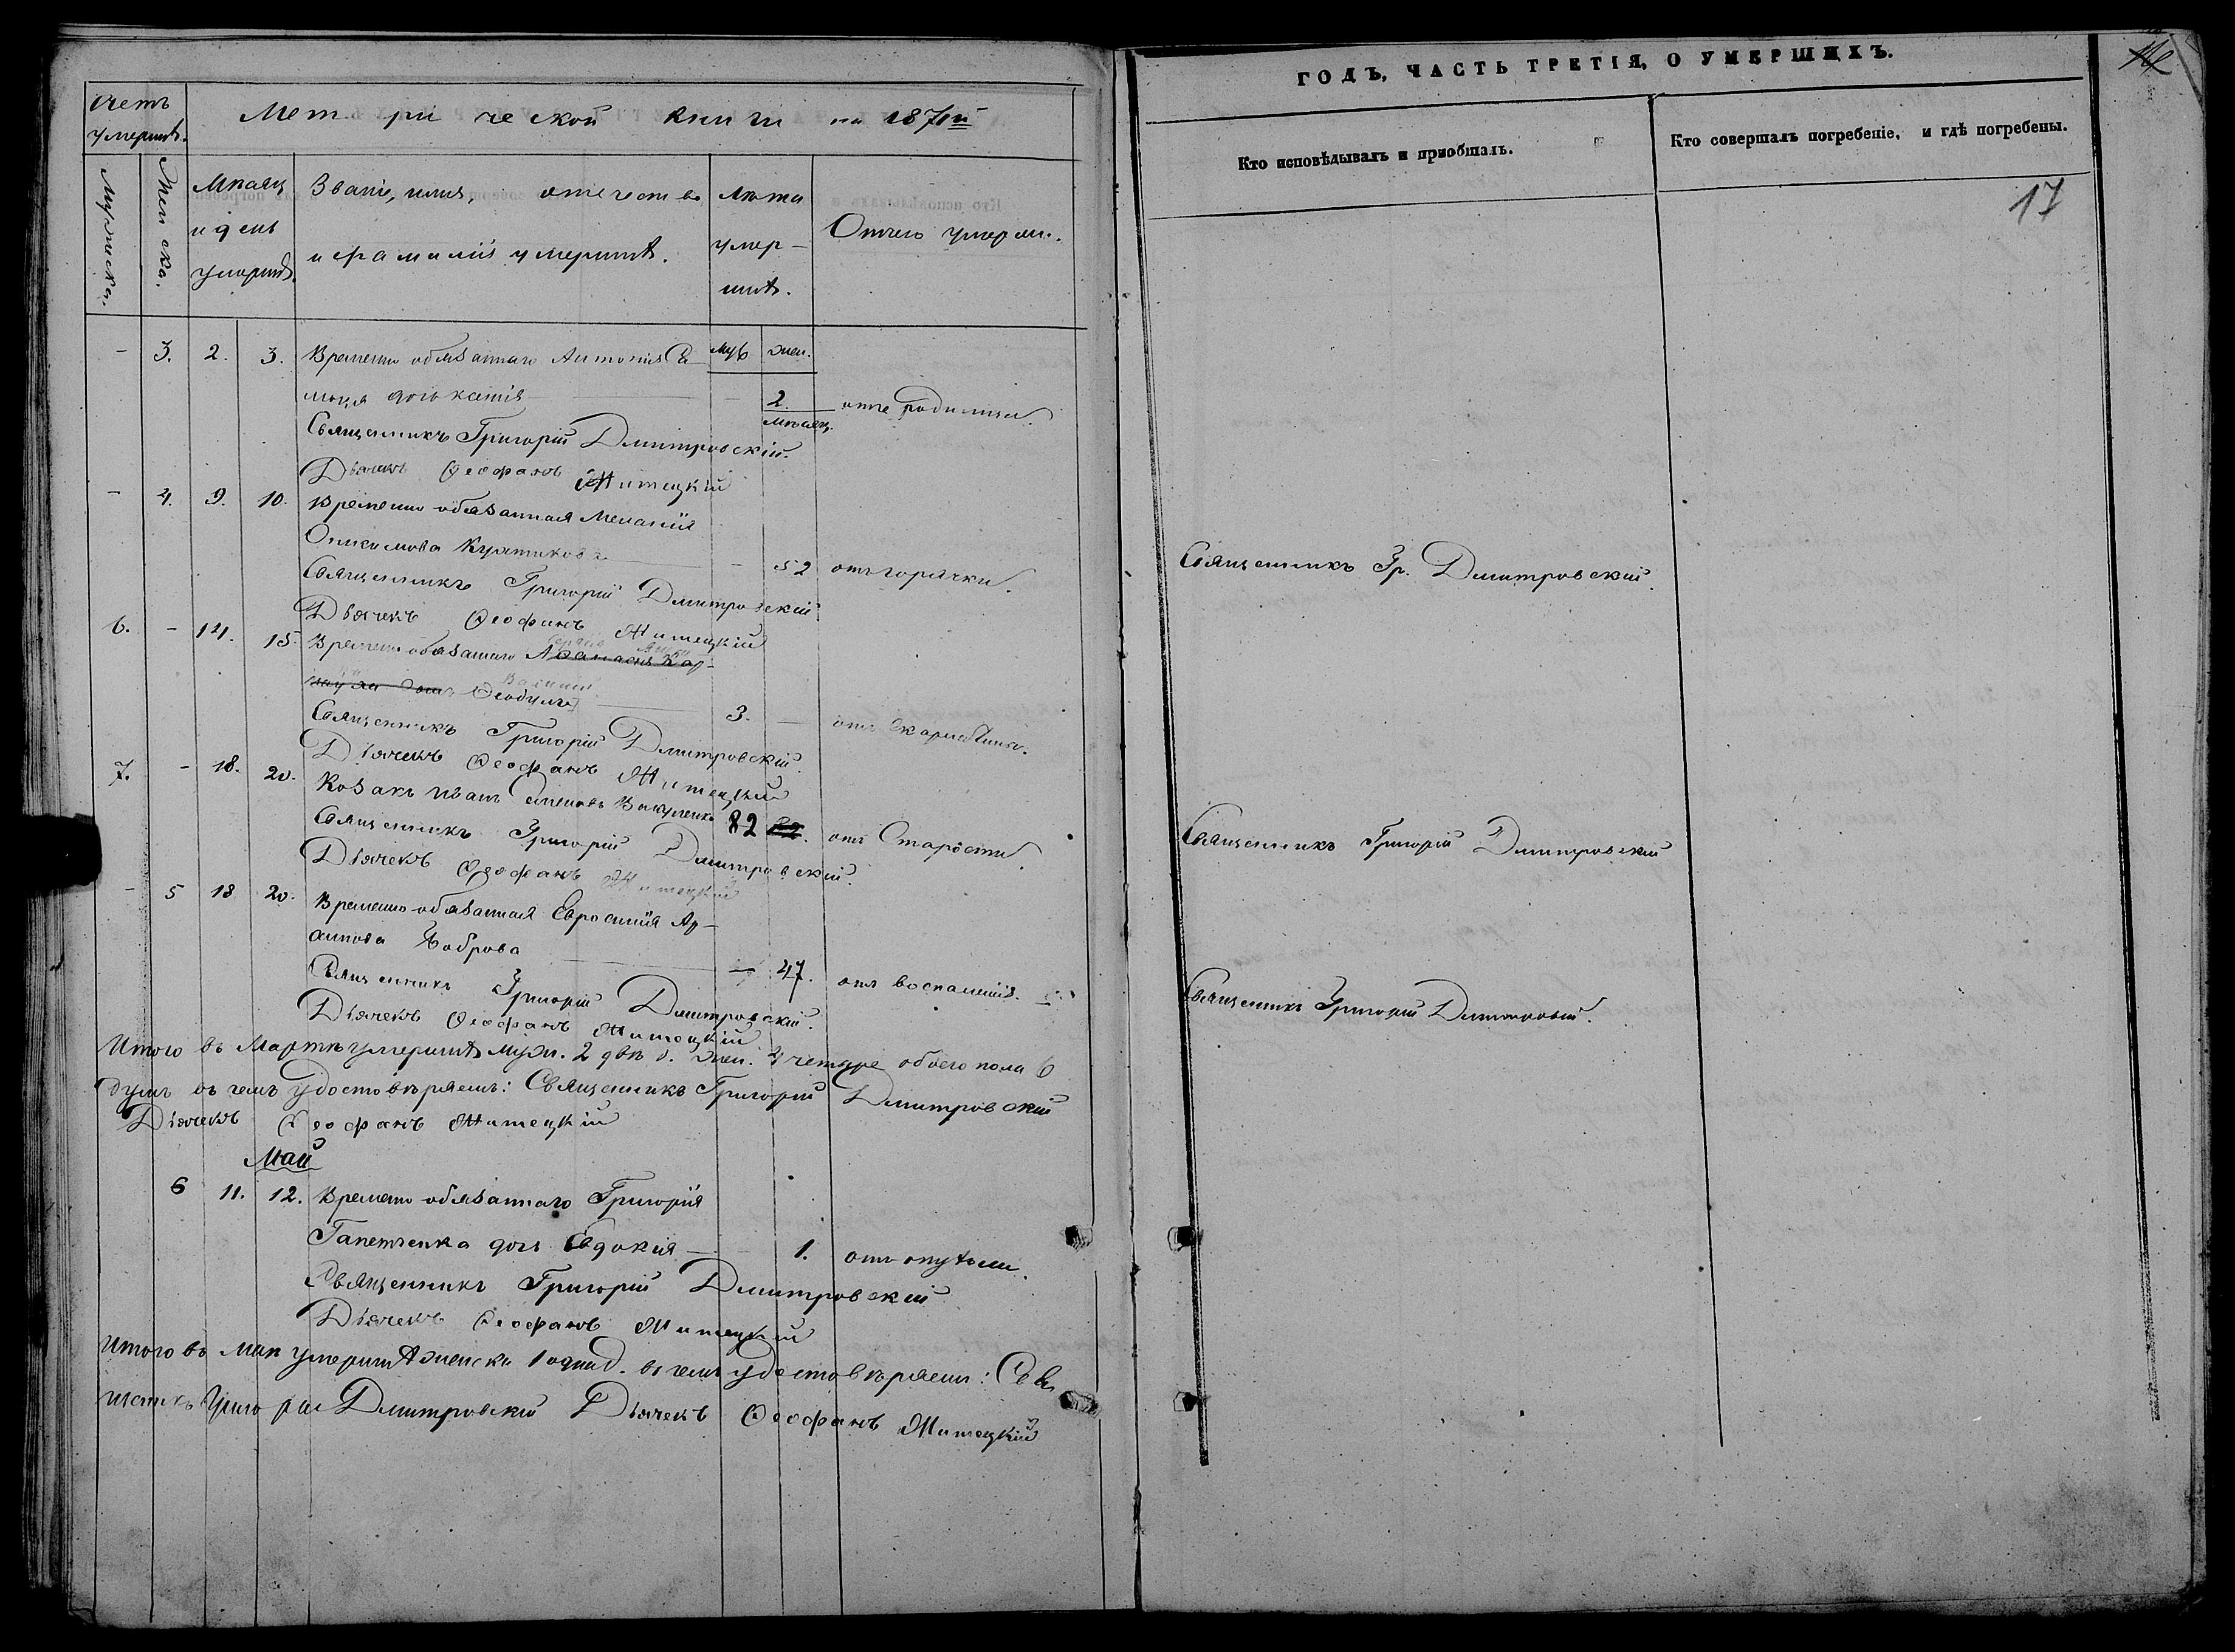 Счетъ умершихъ.
Метрической книги на 1871й
Мужска.
Женска.
Мѣсяцъ
и день
умершихъ.
Званіе, имя, отечество
и фамилія умершихъ.
Лѣта
умер-
шихъ.
Отчего умерли.
- 3. 2. 3. Временно обязаннаго Антонія
Муж Жен.
дочь - 2. мѣсяц.
Священникъ Григорій Дмитровскій.
Дьячекъ Ѳеофанъ Житецкій
- 4. 9. 10. Временно обязанная Меланія
- 52 отъ горячки.
Священникъ Григорій Дмитровскій
Дьячекъ Ѳеофанъ Житецкій
6. - 14. 15. Временно обязаннаго
3. - отъ
Священникъ Григорій Дмитровскій.
Дьячекъ Ѳеофанъ Житецкій
7. - 18. 20. Козакъ Иванъ Вакуленко 82 отъ Старости.
Священникъ Григорій Дмитровскій.
Дьячекъ Ѳеофанъ Житецкій
- 5 18 20. Временно обязанная Евросинія
Боброва - 47. отъ воспаленія.
Священникъ Григорій Дмитровскій.
Дьячекъ Ѳеофанъ Житецкій
Итого въ Мартѣ умершихъ муж. 2 двѣ д. жен. 4 четыре обоего пола 6
душъ въ чемъ удостовѣряемъ: Священникъ Григорій Дмитровскій
Дьячекъ Ѳеофанъ Житецкій
Май
6 11. 12. Временно обязаннаго Григорія
Гапетченка дочь Евдокія - 1. отъ опухоли.
Священникъ Григорій Дмитровскій
Дьячекъ Ѳеофанъ Житецкій
Итого въ Маѣ умершихъ женска 1 одна д. въ чемъ удостовѣряемъ: Свя
щенникъ Григорій Дмитровскій Дьячекъ Ѳеофанъ Житецкій
ГОДЪ, ЧАСТЬ ТРЕТІЯ, О УМЕРШИХЪ.
Кто исповѣдывалъ и пріобщалъ.
Кто совершалъ погребеніе, и гдѣ погребены.
17
Священникъ Гр. Дмитровскій.
Священникъ Григорій Дмитровскій
Священникъ Григорій Дмитровскій.